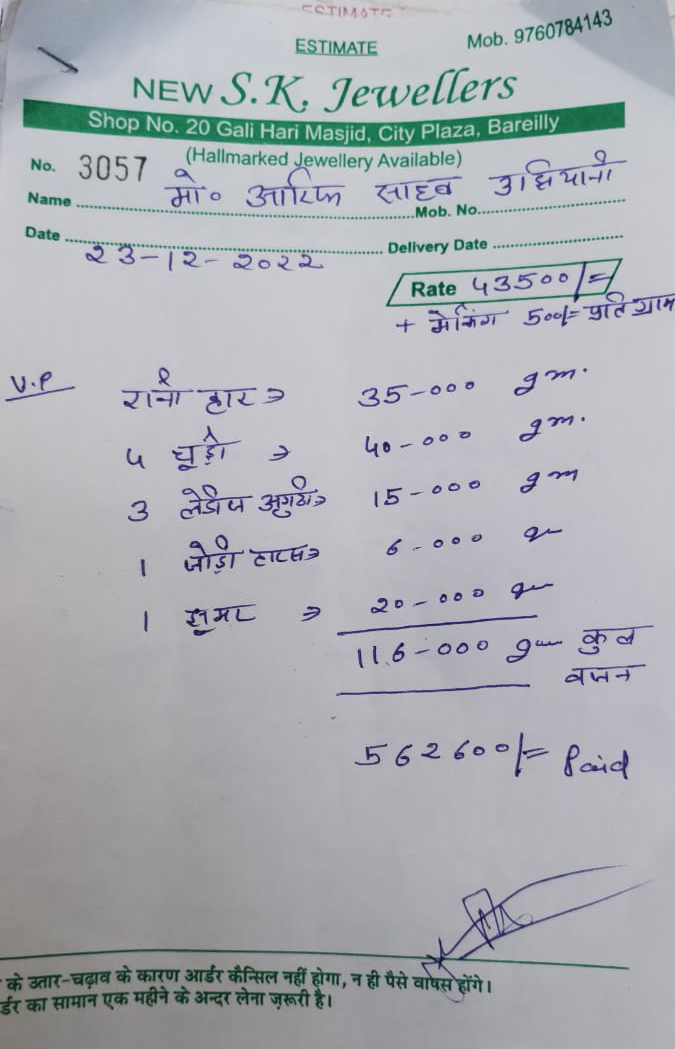 ESTIMATE
ESTIMATE
Mob. 9760784143
NEW S.K. Jewellers
Shop No. 20 Gali Hari Masjid, City Plaza, Bareilly
(Hallmarked Jewellery Available)
No. 3057
Name मो० आरिफ साहब उझियानी
Mob. No.
Date 23-12-2022 Delivery Date
Rate 43500/=
+ मेकिंग 500/= प्रति ग्राम
V.P रानी हार → 35-000 gm.
4 चूड़ी → 40-000 gm.
3 लेडीज अगुठी → 15-000 gm
1 जोड़ी टाप्स → 6-000 gm
1 झूमर → 20-000 gm
116-000 gm कुल
वजन
562600/= Paid
के उतार-चढ़ाव के कारण आर्डर कैन्सिल नहीं होगा, न ही पैसे वापस होंगे।
र्डर का सामान एक महीने के अन्दर लेना ज़रूरी है।